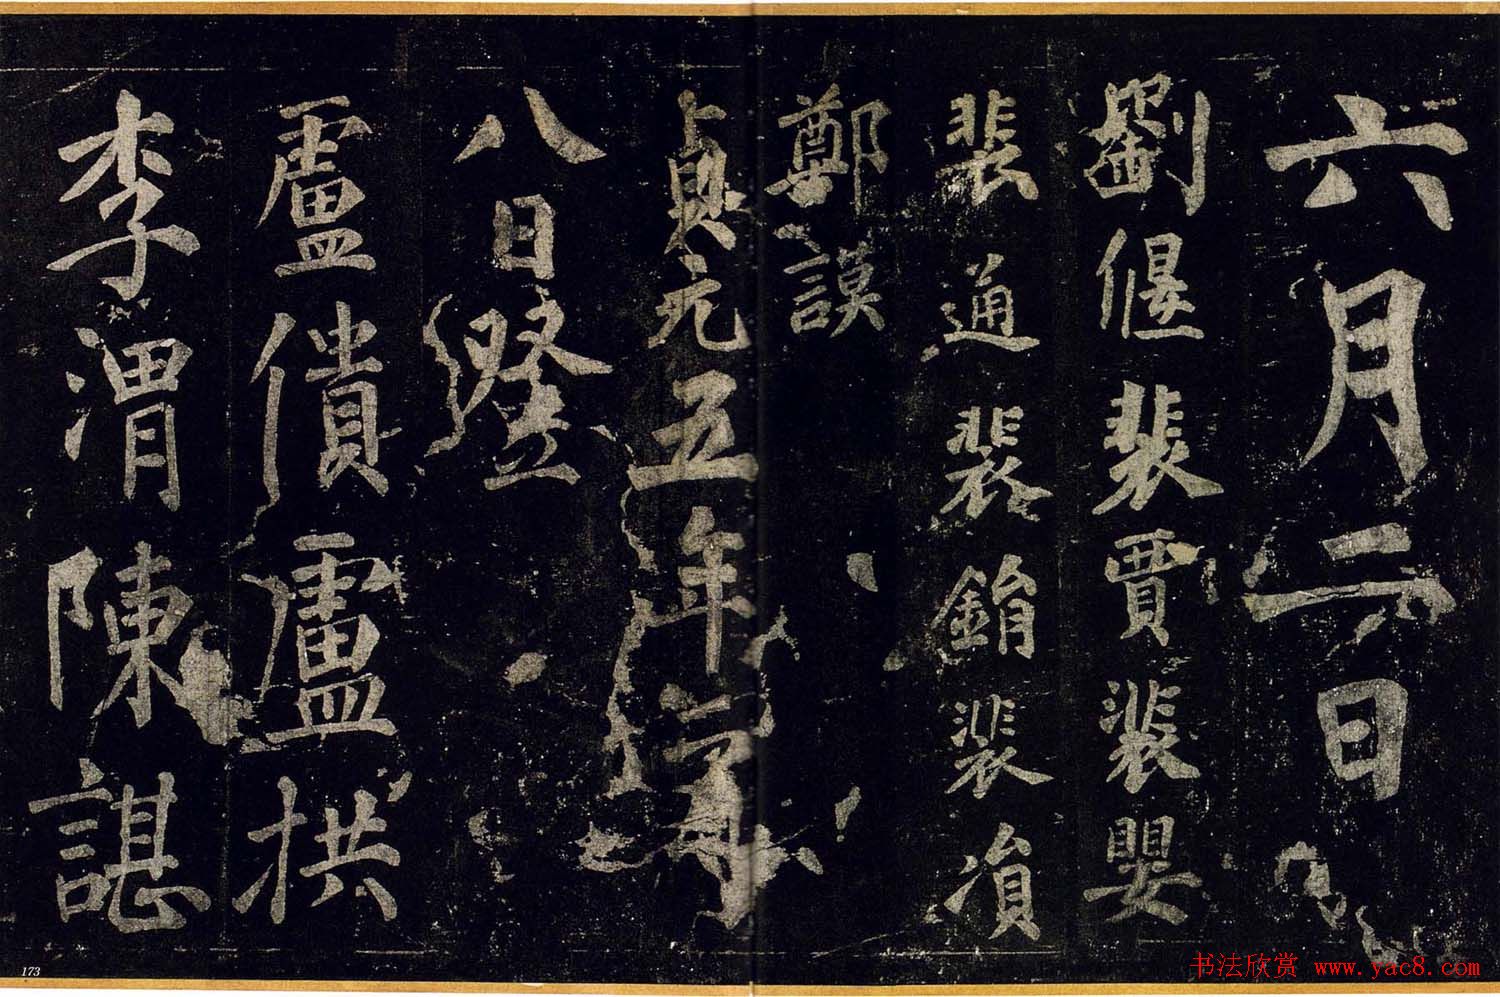 六月二日
劉偃裴賈裴嬰
裴通裴銷裴
鄭謨
貞元五年
八日
盧僓盧拱
李渭陳諶
173
书法欣赏 www.yac8.com